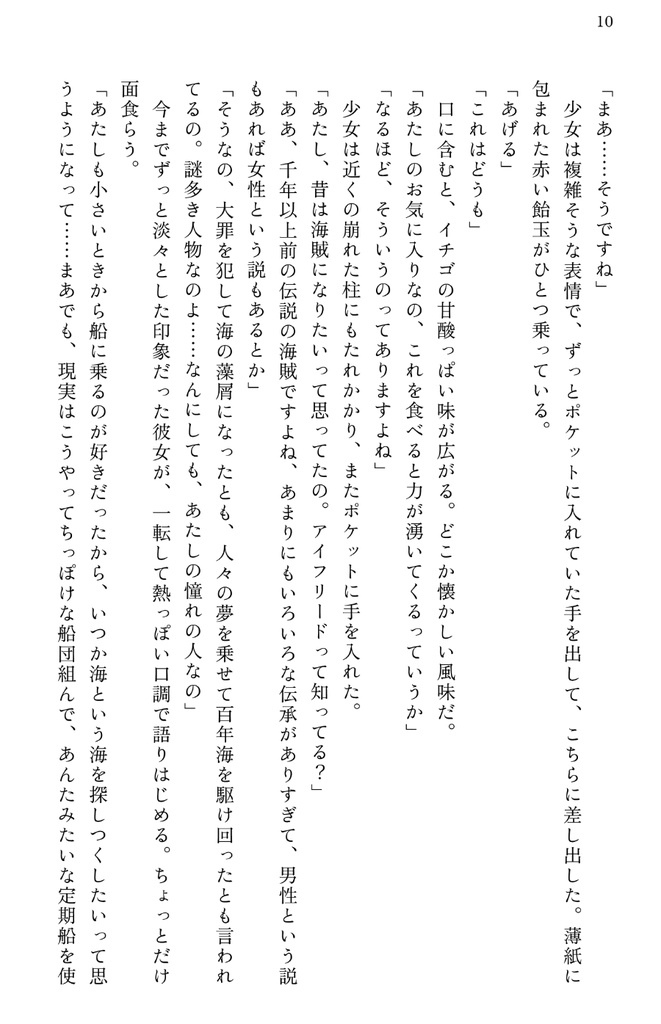 10
「まあ……そうですね」
　少女は複雑そうな表情で、ずっとポケットに入れていた手を出して、こちらに差し出した。薄紙に
包まれた赤い飴玉がひとつ乗っている。
「あげる」
「これはどうも」
　口に含むと、イチゴの甘酸っぱい味が広がる。どこか懐かしい風味だ。
「あたしのお気に入りなの、これを食べると力が湧いてくるっていうか」
「なるほど、そういうのってありますよね」
　少女は近くの崩れた柱にもたれかかり、またポケットに手を入れた。
「あたし、昔は海賊になりたいって思ってたの。アイフリードって知ってる？」
「ああ、千年以上前の伝説の海賊ですよね、あまりにもいろいろな伝承がありすぎて、男性という説
もあれば女性という説もあるとか」
「そうなの、大罪を犯して海の藻屑になったとも、人々の夢を乗せて百年海を駆け回ったとも言われ
てるの。謎多き人物なのよ……なんにしても、あたしの憧れの人なの」
　今までずっと淡々とした印象だった彼女が、一転して熱っぽい口調で語りはじめる。ちょっとだけ
面食らう。
「あたしも小さいときから船に乗るのが好きだったから、いつか海という海を探しつくしたいって思
うようになって……まあでも、現実はこうやってちっぽけな船団組んで、あんたみたいな定期船を使